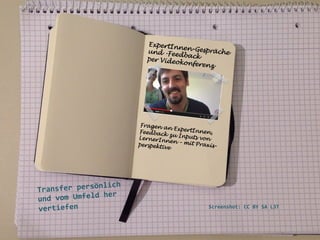 ExpertInnen-Gespräche
und -Feedback
per Videokonferenz
Fragen an ExpertInnen,
Feedback zu Inputs von
LernerInnen - mit Praxis-
perspektive
Transfer persönlich
und vom Umfeld her
vertiefen
Screenshot: CC BY SA L3T